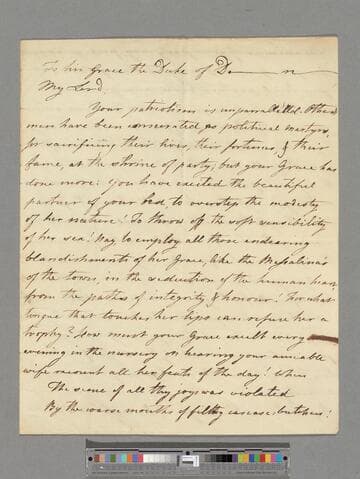 To his Grace the Duke of D——n
My Lord.
Your patriotism is unparrallelled. Other
men have been consecrated, as political martyrs,
for sacrificing their lives, their fortunes, & their
fame, at the shrine of party, but your Grace has
done more: you have excited the beautiful
partner of your bed to overstep the modesty
of her nature! To throw off the soft sensibility
of her sex! Nay to employ all those endearing
blandishments of her Grace, like the Messalina's
of the town, in the seduction of the human heart
from the paths of integrity & honour! For what
tongue that touches her lips can refuse her a
trophy? How must your Grace exult every
evening in the nursery on hearing your amiable
wife recount all her feats of the day! When
The scene of all thy joys was violated
By the coarse mouths of filthy carcase butchers!